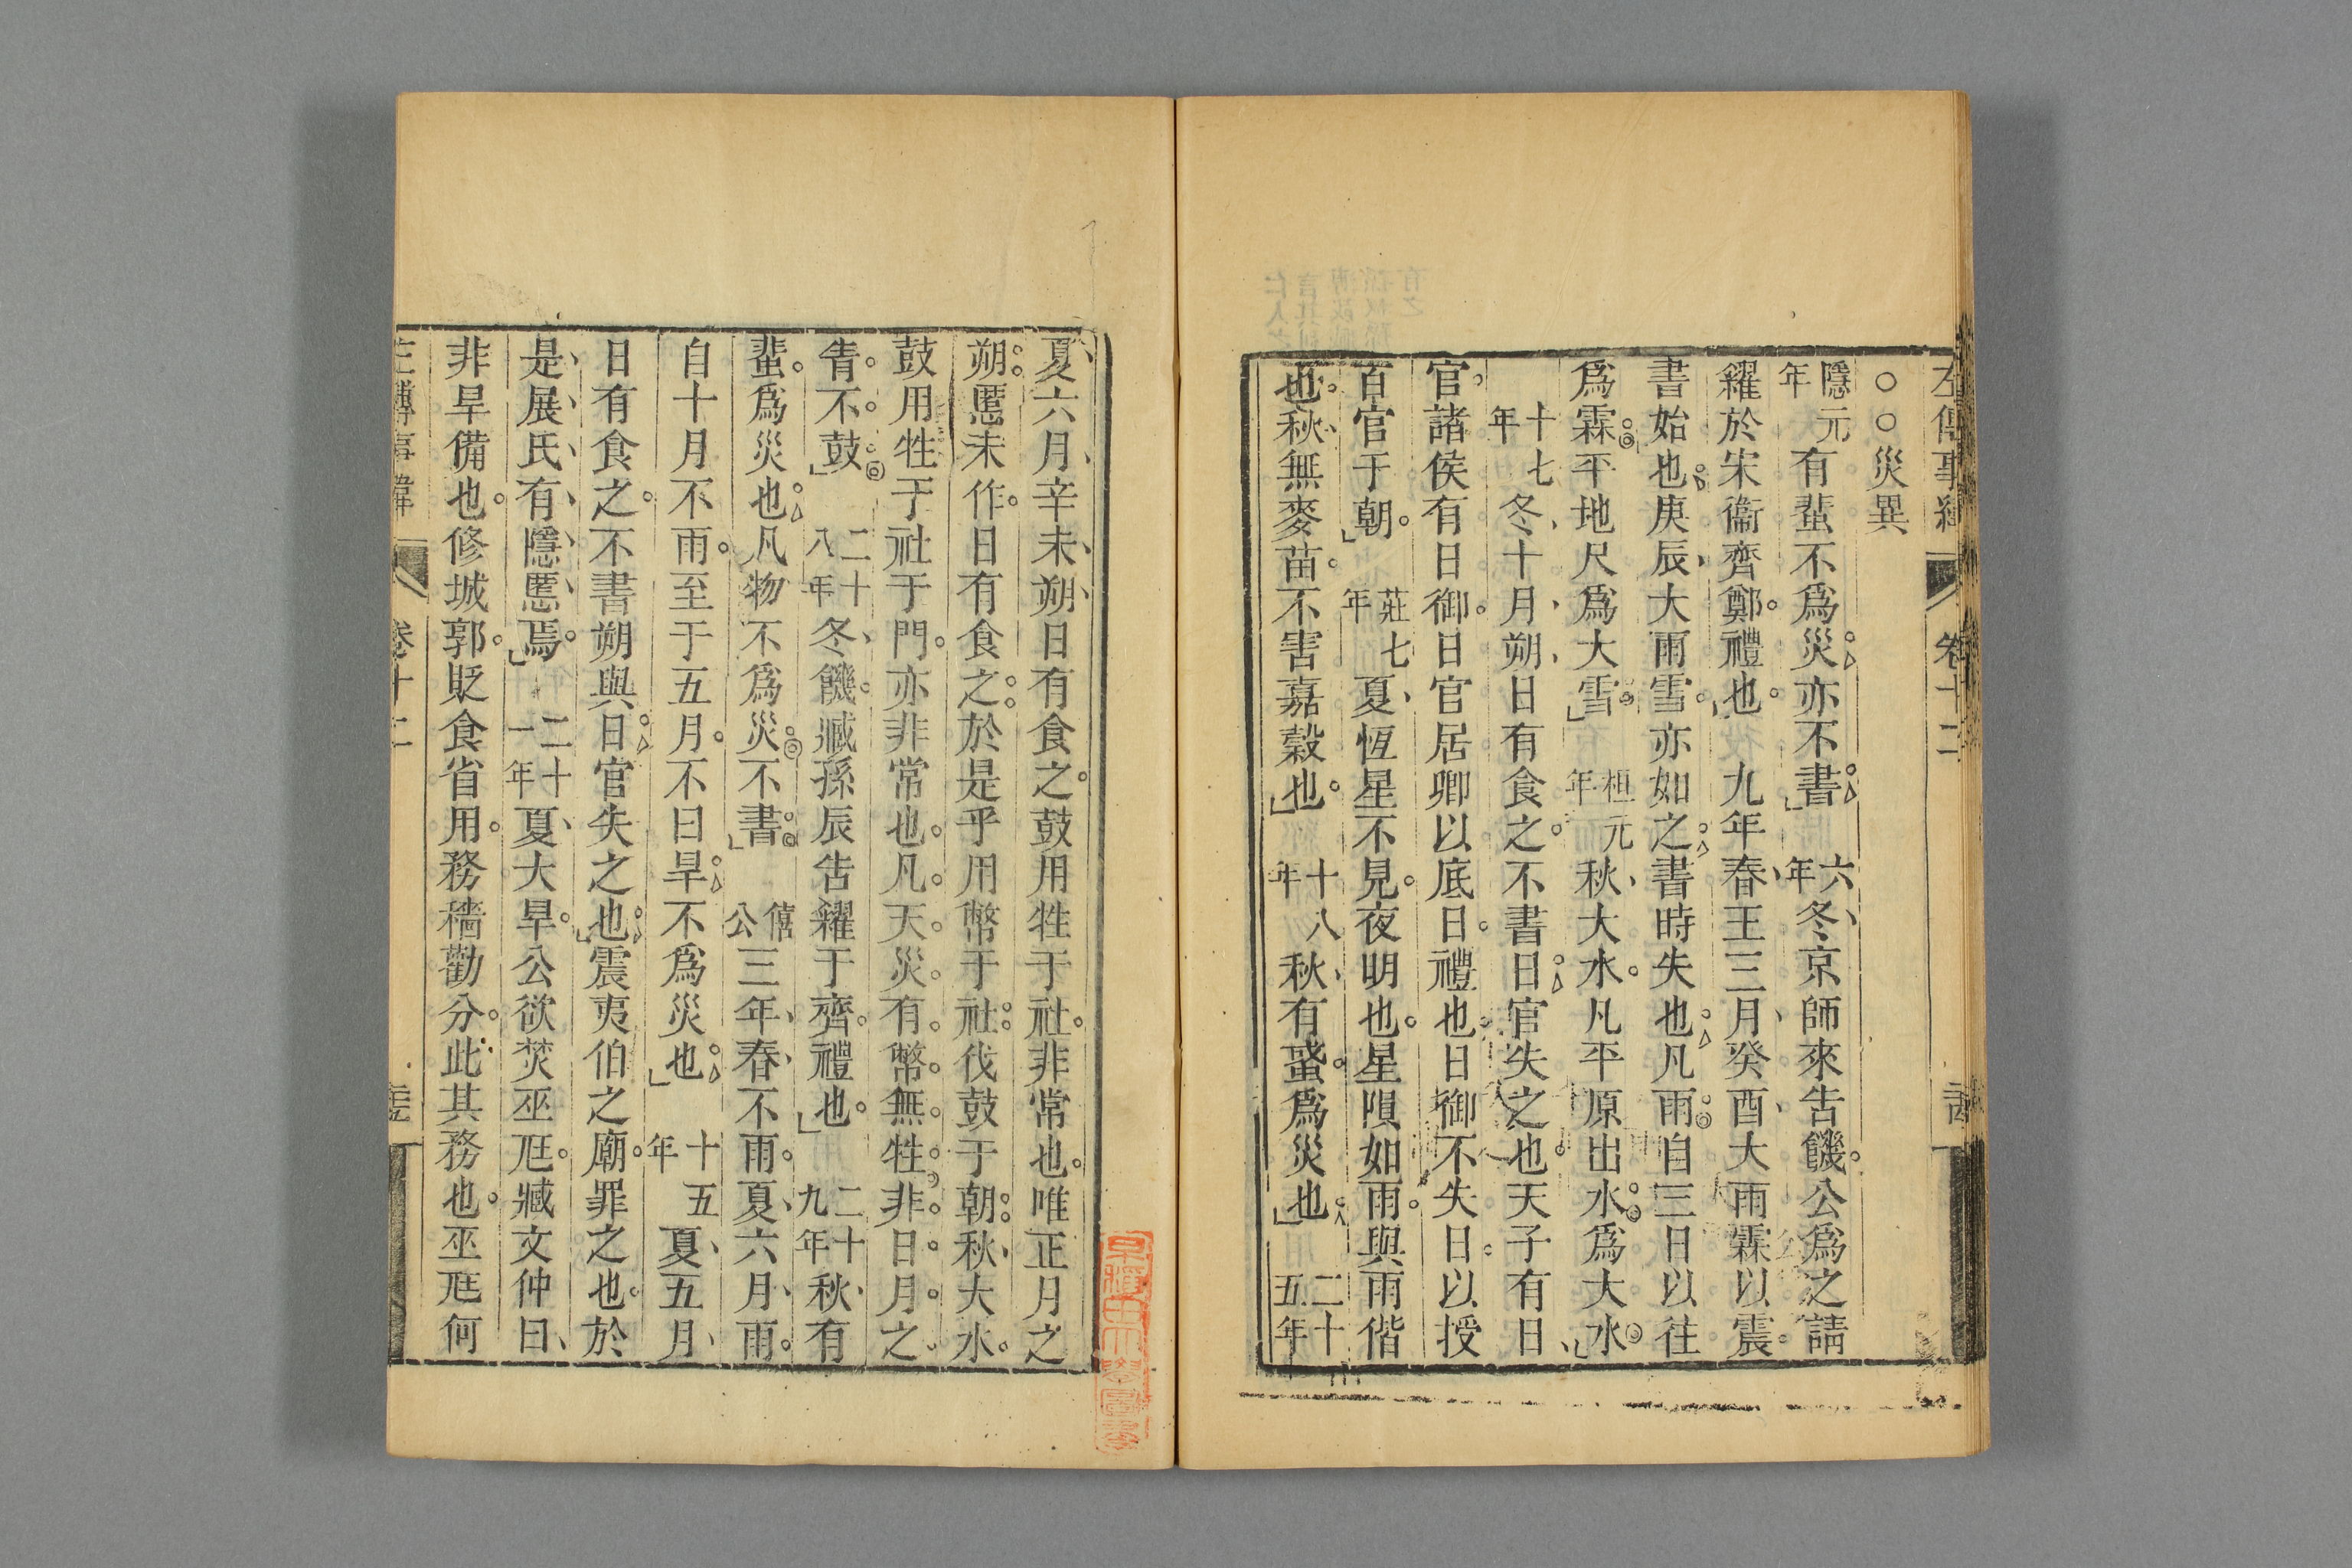 左傳事緯 卷十二
○○災異
隱元年有蜚不爲災亦不書 六年冬京師來告饑公爲之請
糴於宋衞齊鄭禮也 九年春王三月癸酉大雨霖以震
書始也庚辰大雨雪亦如之書時失也凡雨自三日以往
爲霖平地尺爲大雪 桓元年秋大水凡平原出水爲大水
十七年冬十月朔日有食之不書日官失之也天子有日
官諸侯有日御日官居卿以底日禮也日御不失日以授
百官于朝 莊七年夏恆星不見夜明也星隕如雨與雨偕
也秋無麥苗不害嘉穀也 十八年秋有蜮爲災也 二十五年
夏六月辛未朔日有食之鼓用牲于社非常也唯正月之
朔慝未作日有食之於是乎用幣于社伐鼓于朝秋大水
鼓用牲于社于門亦非常也凡天災有幣無牲非日月之
眚不鼓 二十八年冬饑臧孫辰告糴于齊禮也 二十九年秋有
蜚爲災也凡物不爲災不書 僖公三年春不雨夏六月雨
自十月不雨至于五月不曰旱不爲災也 十五年夏五月
日有食之不書朔與日官失之也震夷伯之廟罪之也於
是展氏有隱慝焉 二十一年夏大旱公欲焚巫尫臧文仲曰
非旱備也修城郭貶食省用務穡勸分此其務也巫尫何
左傳事緯 卷十二
早稲田大學圖書